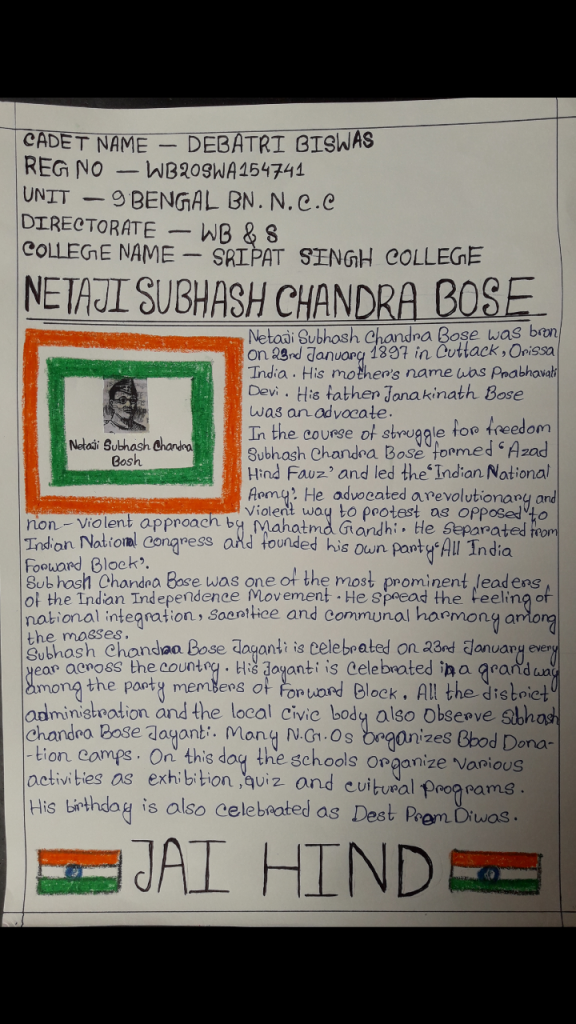 CADET NAME — DEBATRI BISWAS
REG NO — WB20SWA154741
UNIT — 9 BENGAL BN. N.C.C
DIRECTORATE — WB & S
COLLEGE NAME — SRIPAT SINGH COLLEGE
NETAJI SUBHASH CHANDRA BOSE
Netaji Subhash Chandra Bosh
Netaji Subhash Chandra Bose was bron
on 23rd January 1897 in Cuttack, Orissa
India. His mother's name was Prabhavati
Devi. His father Janakinath Bose
was an advocate.
In the course of struggle for freedom
Subhash Chandra Bose formed 'Azad
Hind Fauz' and led the 'Indian National
Army'. He advocated a revolutionary and
violent way to protest as opposed to
non-violent approach by Mahatma Gandhi. He separated from
Indian National congress and founded his own party 'All India
Forward Block'.
Subhash Chandra Bose was one of the most prominent leaders
of the Indian Independence Movement. He spread the feeling of
national integration, sacrifice and communal harmony among
the masses.
Subhash Chandra Bose Jayanti is celebrated on 23rd January every
year across the country. His Jayanti is celebrated in a grand way
among the party members of Forward Block. All the district
administration and the local civic body also Observe Subhash
Chandra Bose Jayanti. Many N.G.Os organizes Blood Dona-
-tion camps. On this day the schools organize various
activities as exhibition, quiz and cultural programs.
His birthday is also celebrated as Desh Prem Diwas.
JAI HIND